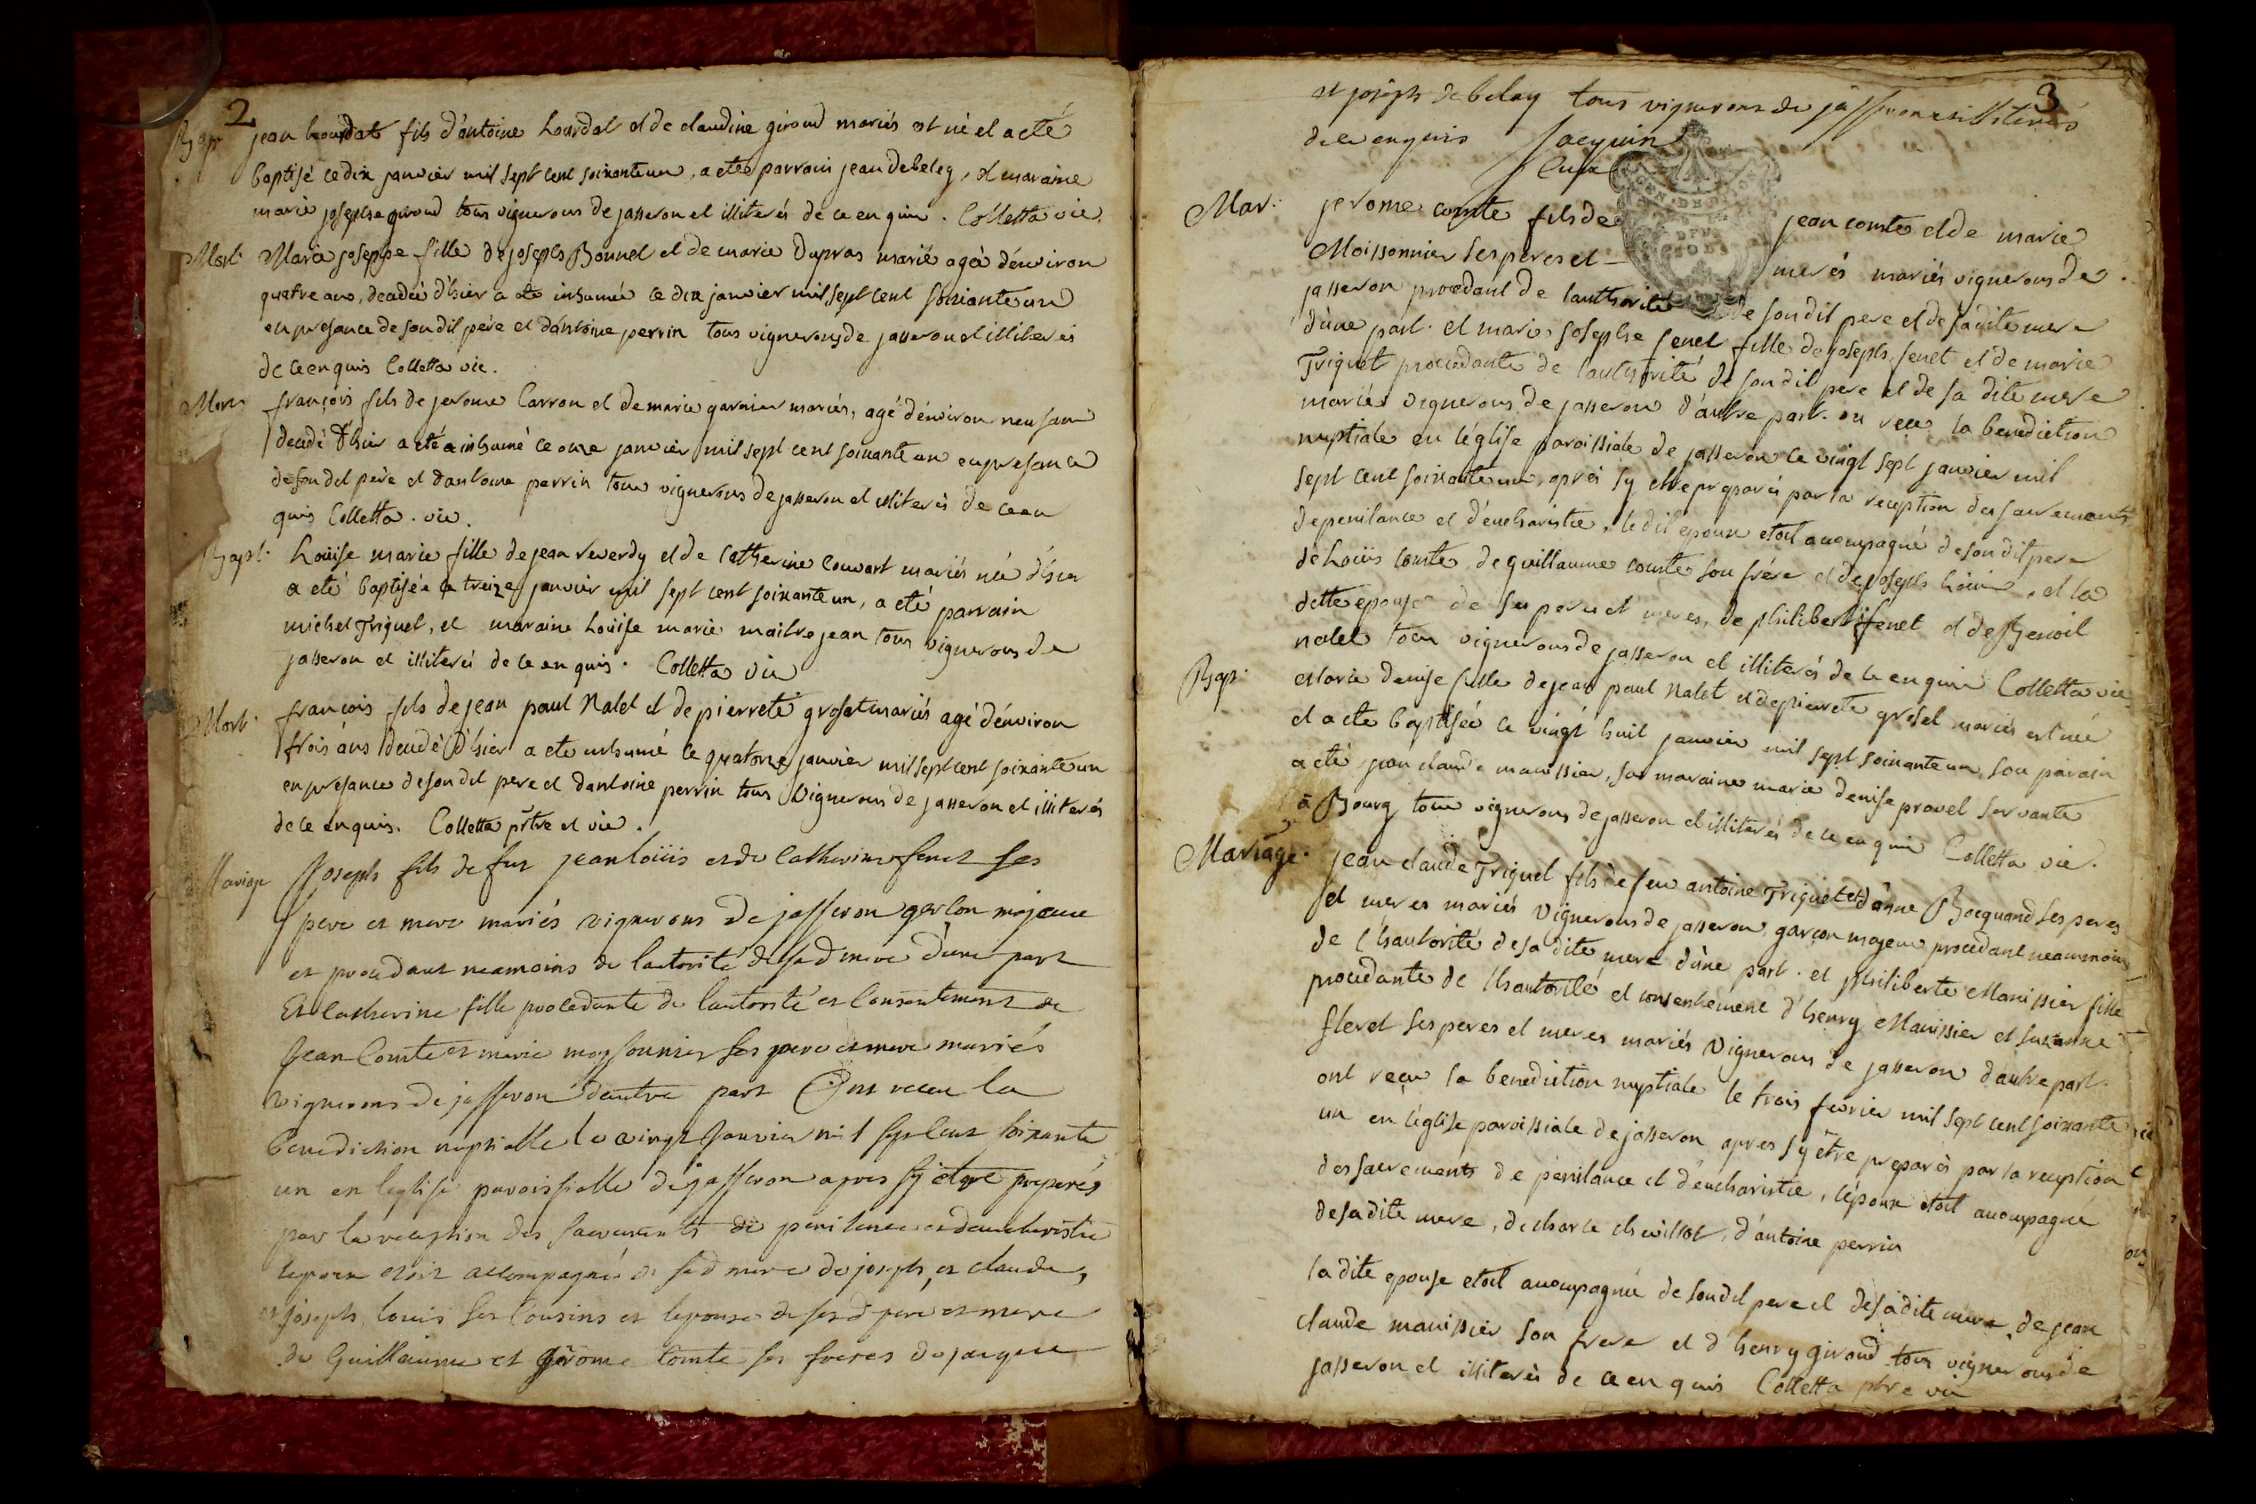 2
Bap. jean hourdat fils d'antoine hourdat et de claudine giroud mariés est né et a eté
baptisé ce dix janvier mil sept cent soixante un, a eté parrain jean debeley, et maraine
marie josephe giroud tous vignerons de jasseron et illiterés de ce enquis. Colletta vic.
Mort. Marie josephe fille de joseph Bonnet et de marie Dupras mariés agée d'environ
quatre ans, decedée d'hier a eté inhumée ce dix janvier mil sept cent soixante un
en presance de son dit père et d'antoine perrin tous vignerons de jasseron et illiterés
de ce enquis Colletta vic.
Mort. françois fils de jerome Carron et de marie garnier mariés, agé d'environ neuf ans
decedé d'hier a eté inhumé ce onze janvier mil sept cent soixante un en presance
de son dit père et d'antoine perrin tous vignerons de jasseron et illiterés de ce en
quis Colletta. vic.
Bapt. Loüise marie fille de jean reverdy et de Catherine Couvart mariés née d'hier
a eté baptisée ce treize janvier mil sept cent soixante un, a eté parrain
michel Triquet, et maraine Loüise marie maitrejean tous vignerons de
jasseron et illiterés de ce enquis. Colletta vic
Mort. françois fils de jean paul Nalet et de pierrete grosat mariés agé d'environ
trois ans decedé d'hier a eté inhumé le quatorze janvier mil sept cent soixante un
en presance de son dit pere et d'antoine perrin tous vignerons de jasseron et illiterés
de ce enquis. Colletta prtre et vic.
Mariage Joseph fils de feu jean loüis et de Catherine fenet ses
pere et mere mariés vignerons de jasseron garçon majeur
et procedant neamoins de l'autorité de sad mere d'une part
Et Catherine fille procedante de l'autorité et Consentement de
Jean Comte et marie moyssonnier ses pere et mere mariés
vignerons de jasseron d'autre part Ont receu la
benediction nuptialle le vingt Janvier mil sept Cent soixante
un en leglise paroissialle de jasseron apres sy etre preparés
par la reception des sacrements de penitence et deucharistie
lepoux etoit accompagné de sad mere de joseph, et claude,
et joseph louis ses Cousins et lepouse de sesd pere et mere
de Guillaume et Gérome Comte ses freres de jacque
3
et joseph debelay tous vignerons de jasseron et illiterés
de ce enquis Jacquin
Curé
Mar. jerome comte fils de jean comte et de marie
Moissonnier ses peres et merés mariés vignerons de
jasseron procedant de l'authorité de son dit pere et de sa dite mere
d'une part. et marie josephe fenet fille de joseph fenet et de marie
Triquet procedante de l'authorité de son dit pere et de sa dite mere
mariés vignerons de jasseron d'autre part. on recu la benediction
nuptiale en l'église paroissiale de jasseron ce vingt sept janvier mil
sept cent soixante un, aprés sy etre preparés par la reception des sacrements
de penitance et d'eucharistie, ledit epoux etoit acompagné de son dit pere
de Loüis comte, de guillaume comte son frére et de joseph Loüis, et la
ditte epouse de ses pere et meres, de philibert fenet et de Benoit
nalet tous vignerons de jasseron et illiterés de ce enquis Colletta vic
Bap. Marie denise fille de jean paul Nalet et de pierrete grosel mariés est née
et a eté baptisée ce vingt huit janvier mil sept soixante un, son parain
a eté jean claude manissier, sa maraine marie denise pravel servante
a Bourg tous vignerons de jasseron et illiterés de ce enquis Colletta vic.
Mariage. jean claude Triquet fils de feu antoine Triquet et d'anne Bocquand ses peres
et meres mariés vignerons de jasseron, garçon majeur procedant neammoins
de l'hautorité de sa dite mere d'une part. et philiberte Manissier fille
procedante de l'hautorité et consentement d'henry Manissier et susanne
floret ses peres et meres mariés vignerons de jasseron d'autre part.
ont reçu la benediction nuptiale le trois fevrier mil sept cent soixante
un en l'eglise paroissiale de jasseron apres sy être preparés par la reception
des sacrements de penitance et d'eucharistie, l'époux etoit acompagné
de sa dite mere, de charle chevillot, d'antoine perrin
la dite epouse etoit acompagnée de son dit pere et de sa dite mere, de jean
claude manissier son frere et d henry giroud tous vignerons de
jasseron et illiterés de ce en quis Colletta ptre vic